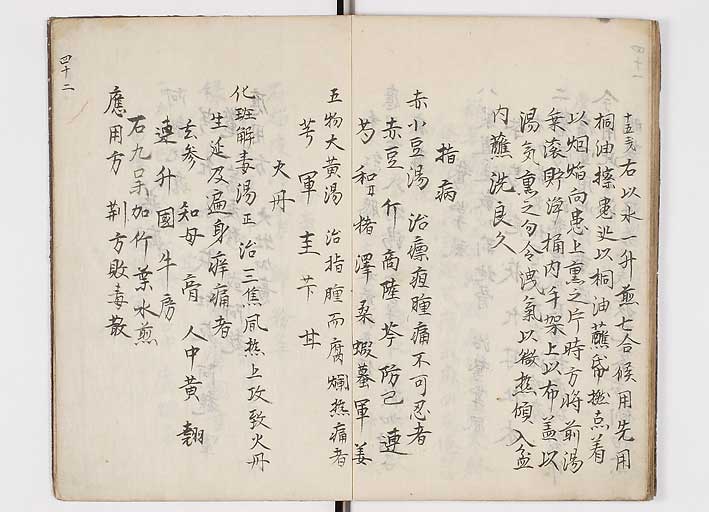 十五戔 右以水一升煎七合候用先用
桐油搽患処以桐油蘸紙撚点着
以烟焔向患上熏之片時方将前湯
乗滾貯浄桶内手架上以布盖以
湯気熏之勿令洩気以微熱傾入盆
内蘸洗良久
指病
赤小豆湯 治瘭疽腫痛不可忍者
赤豆 商陸 芩 防己 連
芍 和 楮 澤 桑 蝦蟇 軍 姜
五物大黄湯 治指腫而腐爛熱痛者
芎 軍 圭 苄 甘
火丹
化斑解毒湯 正 治三焦風熱上攻致火丹
生延及遍身痒痛者
玄参 知母 膏 人中黄 翹
連 升 國 牛房
右九味加竹葉水煎
應用方 荆方敗毒散
四十二
四十一